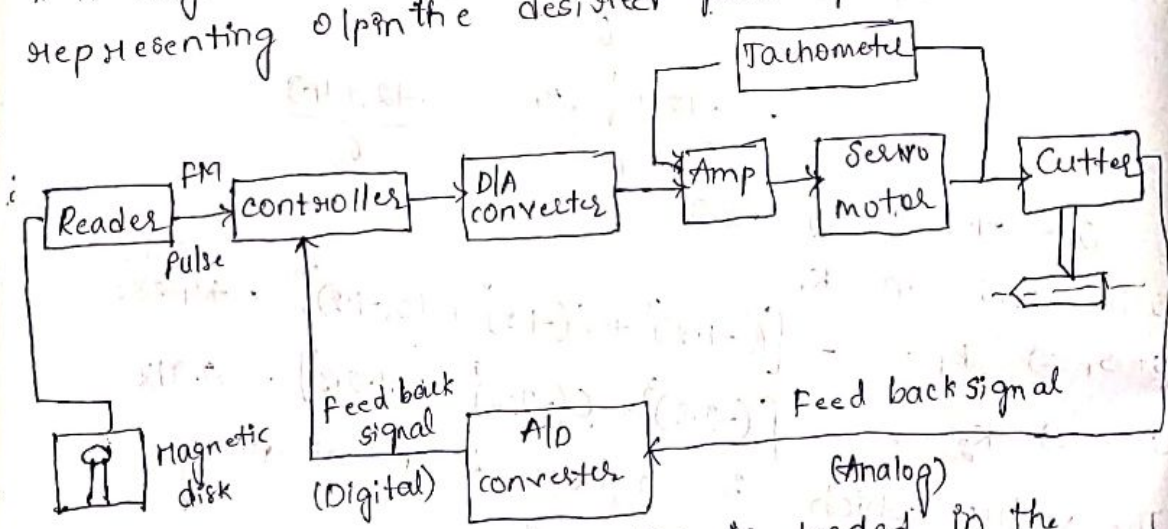 representing o/p in the
Tachometer
FM
Reader
controller
D/A
converter
Amp
Servo
motor
Cutter
Pulse
Feed back
signal
(Digital)
A/D
converter
Feed back signal
(Analog)
Magnetic
disk
in the